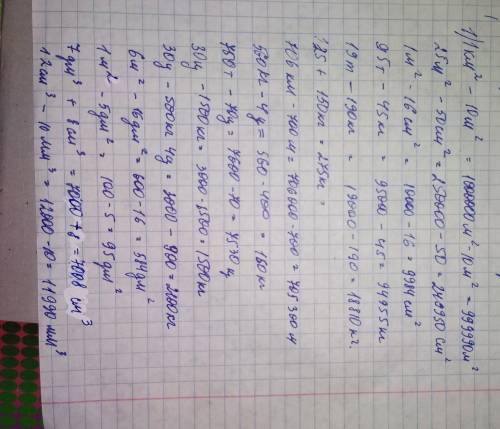 1) 1 км² - 10 м² = 1000000 м² - 10 м² = 999990 м²
25 м² - 50 см² = 250000 - 50 = 249950 см²
1 м² - 16 см² = 10000 - 16 = 9984 см²
95т - 45 кг = 95000 - 45 = 94955 кг
19т - 190кг = 19000 - 190 = 18810 кг.
125 + 150кг = 275кг =
706 км - 700 м = 706000 - 700 = 705300 м
560кг - 4ц = 560 - 400 = 160кг
760т - 70ц = 7600 - 70 = 7530 ц
30ц - 1500кг = 3000 - 1500 = 1500кг
30ц - 500кг 4ц = 3000 - 900 = 2100кг
6м² - 16дм² = 600 - 16 = 584дм²
1м² - 5дм² = 100 - 5 = 95дм²
7дм³ + 8см³ = 7000 + 8 = 7008 см³
12см³ - 10мм³ = 12000 - 10 = 11990 мм³